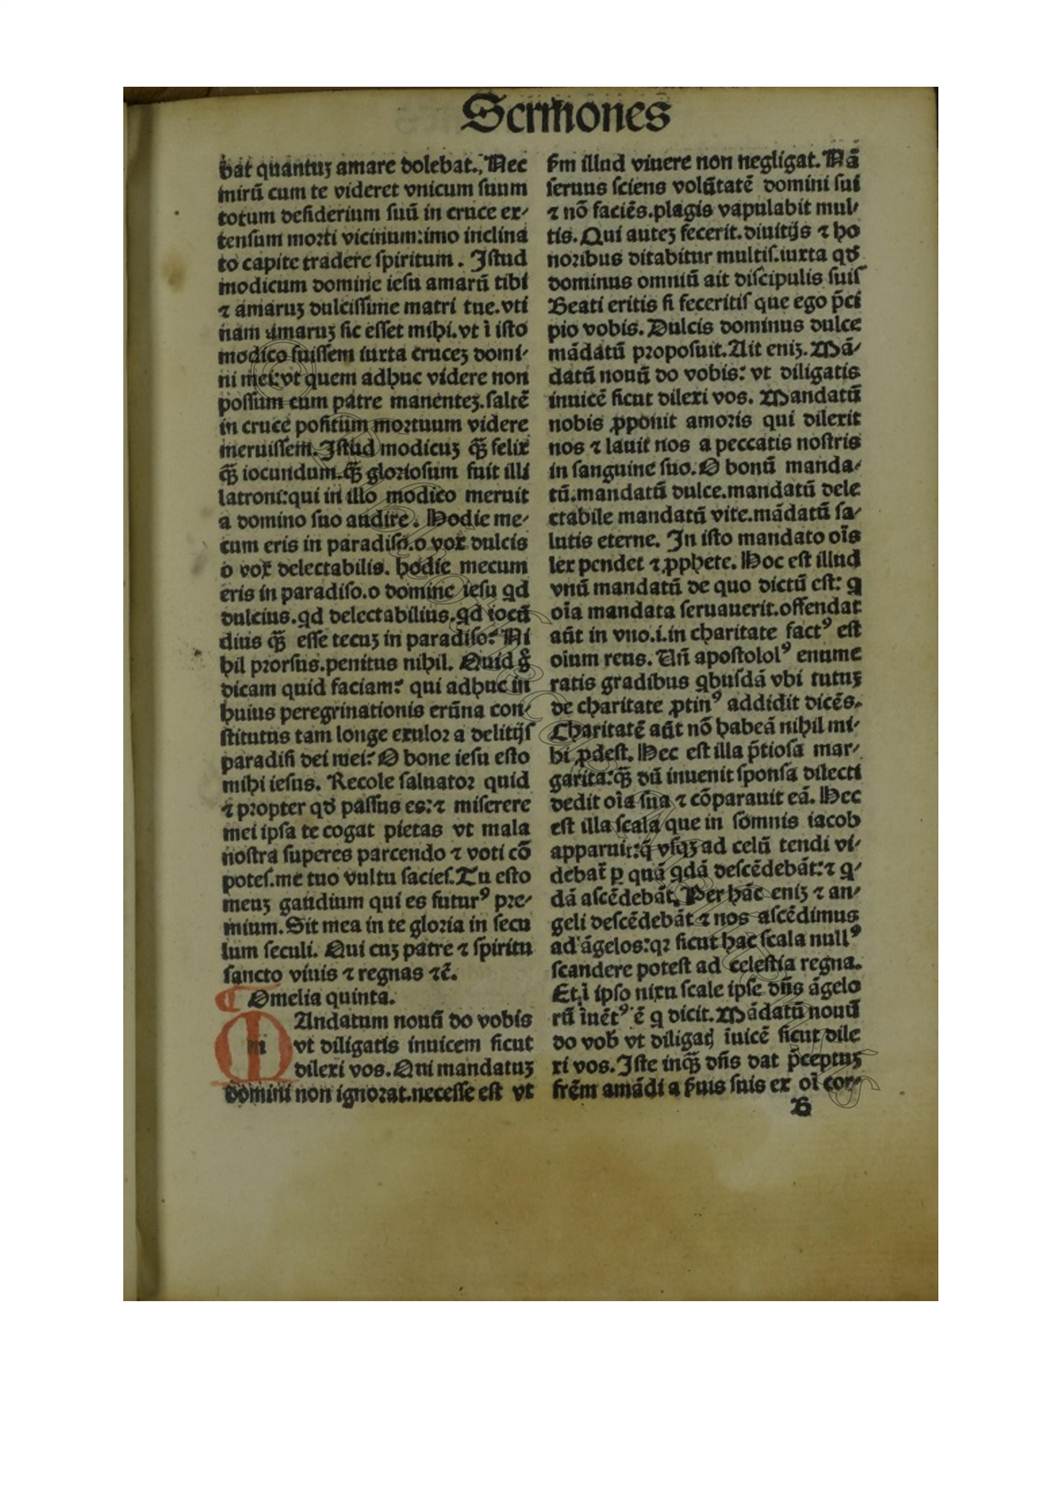 Sermones
bat quantuꝫ amare dolebat. Nec
mirũ cum te videret vnicum suum
totum desiderium suũ in cruce ex⸗
tensum morti vicinum:imo inclina
to capite tradere spiritum. Istud
modicum domine iesu amarũ tibi
⁊ amaruꝫ dulcissime matri tue.vti
nam amaruꝫ sic esset mihi.vt ĩ isto
modico fuissem iuxta cruceꝫ domi⸗
ni mei:vt quem adhuc videre non
possum cum patre manenteꝫ.saltẽ
in cruce positum mortuum videre
meruissem.Istud modicuꝫ q̃ꝫ felix
q̃ꝫ iocundum.q̃ꝫ gloriosum fuit illi
latroni:qui in illo modico meruit
a domino suo audire. Hodie me⸗
cum eris in paradiso.o vox dulcis
o vox delectabilis. hodie mecum
eris in paradiso.o domine iesu qd
dulcius.qd delectabilius.qd iocũ
dius q̃ꝫ esse tecuꝫ in paradiso? Ni
hil prorsus.penitus nihil. Quid g̊
dicam quid faciam? qui adhuc in
huius peregrinationis erũna con⸗
stitutus tam longe exulor a delitijs
paradisi dei mei? O bone iesu esto
mihi iesus. Recole saluator quid
⁊ propter qd̕ passus es:⁊ miserere
mei ipsa te cogat pietas vt mala
nostra superes parcendo ⁊ voti cõ
potes.me tuo vultu sacies.Tu esto
meuꝫ gaudium qui es futurꝰ pre⸗
mium.Sit mea in te gloria in secu
lum seculi. Qui cuꝫ patre ⁊ spiritu
sancto viuis ⁊ regnas ⁊c̃.
¶ Omelia quinta.
MAndatum nouũ do vobis
vt diligatis inuicem sicut
dilexi vos.Qui mandatuꝫ
domini non ignorat.necesse est vt
s̃m illud viuere non negligat.Nã
seruus sciens volũtatẽ domini sui
⁊ nõ faciẽs.plagis vapulabit mul⸗
tis.Qui auteꝫ fecerit.diuitijs ⁊ ho
noribus ditabitur multis.iuxta qd̕
dominus omniũ ait discipulis suis
Beati eritis si feceritis que ego p̃ci
pio vobis. Dulcis dominus dulce
mãdatũ proposuit.Ait eniꝫ.Mã⸗
datũ nouũ do vobis: vt diligatis
inuicẽ sicut dilexi vos. Mandatũ
nobis ꝓponit amoris qui dilexit
nos ⁊ lauit nos a peccatis nostris
in sanguine suo.O bonũ manda⸗
tũ.mandatũ dulce.mandatũ dele
ctabile mandatũ vite.mãdatũ sa⸗
lutis eterne. In isto mandato oĩs
lex pendet ⁊ ꝓphete. Hoc est illud
vnũ mandatũ de quo dictũ est: q
oĩa mandata seruauerit.offendat
aũt in vno.i.in charitate factꝰ est
oĩum reus. Vñ apostololꝰ enume
ratis gradibus qbusdã vbi tutuꝫ
de charitate ꝓtinꝰ addidit dicẽs.
Charitatẽ aũt nõ habeã nihil mi⸗
hi ꝓdest. Hec est illa p̃tiosa mar⸗
garita:q̃ꝫ dũ inuenit sponsa dilecti
dedit oĩa sua ⁊ cõparauit eã. Hec
est illa scala que in somnis iacob
apparuit:q̃ vsqꝫ ad celũ tendi vi⸗
debat̕ ꝑ quã qdã descẽdebãt:⁊ q⸗
dã ascẽdebãt.Per hãc eniꝫ ⁊ an⸗
geli descẽdebãt ⁊ nos ascẽdimus
ad ãgelos:qꝛ sicut hac scala nullꝰ
scandere potest ad celestia regna.
Et ĩ ipso nixu scale ipse dñs ãgelo
rũ ĩuẽtꝰ ẽ q dicit.Mãdatũ nouũ
do vob̕ vt diligatꝭ ĩuicẽ sicut dile
xi vos.Iste inq̃ꝫ dñs dat p̃ceptuꝫ
fr̃em amãdi a p̃uis suis ex oĩ cor⸗
B